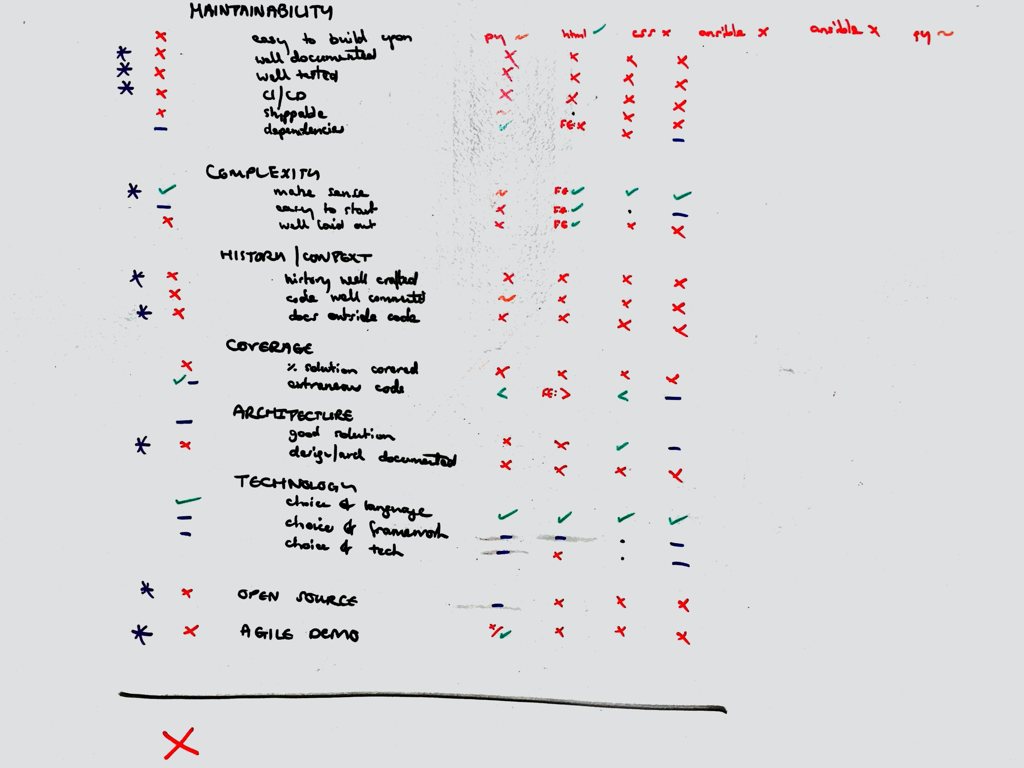 MAINTAINABILITY
× easy to build upon py ~ html ✓ css × ansible × ansible × py ~
* × well documented × × × ×
* × well tested × × × ×
* × CI/CD × × × ×
× shippable ~ · × ×
– dependencies ✓ FE: × × –
COMPLEXITY
* ✓ make sense ~ FE ✓ ✓ ✓
– easy to start × FE ✓ · –
× well laid out × FE ✓ × ×
HISTORY/CONTEXT
* × history well crafted × × × ×
× code well commented ~ × × ×
* × docs outside code × × × ×
COVERAGE
× % solution covered × × × ×
✓ – extraneous code < FE: > < –
ARCHITECTURE
– good solution × × ✓ –
* × design/arch documented × × × ×
TECHNOLOGY
✓ choice of language ✓ ✓ ✓ ✓
– choice of framework – – · –
– choice of tech – × · –
* × OPEN SOURCE – × × ×
* × AGILE DEMO ×/✓ × × ×
×